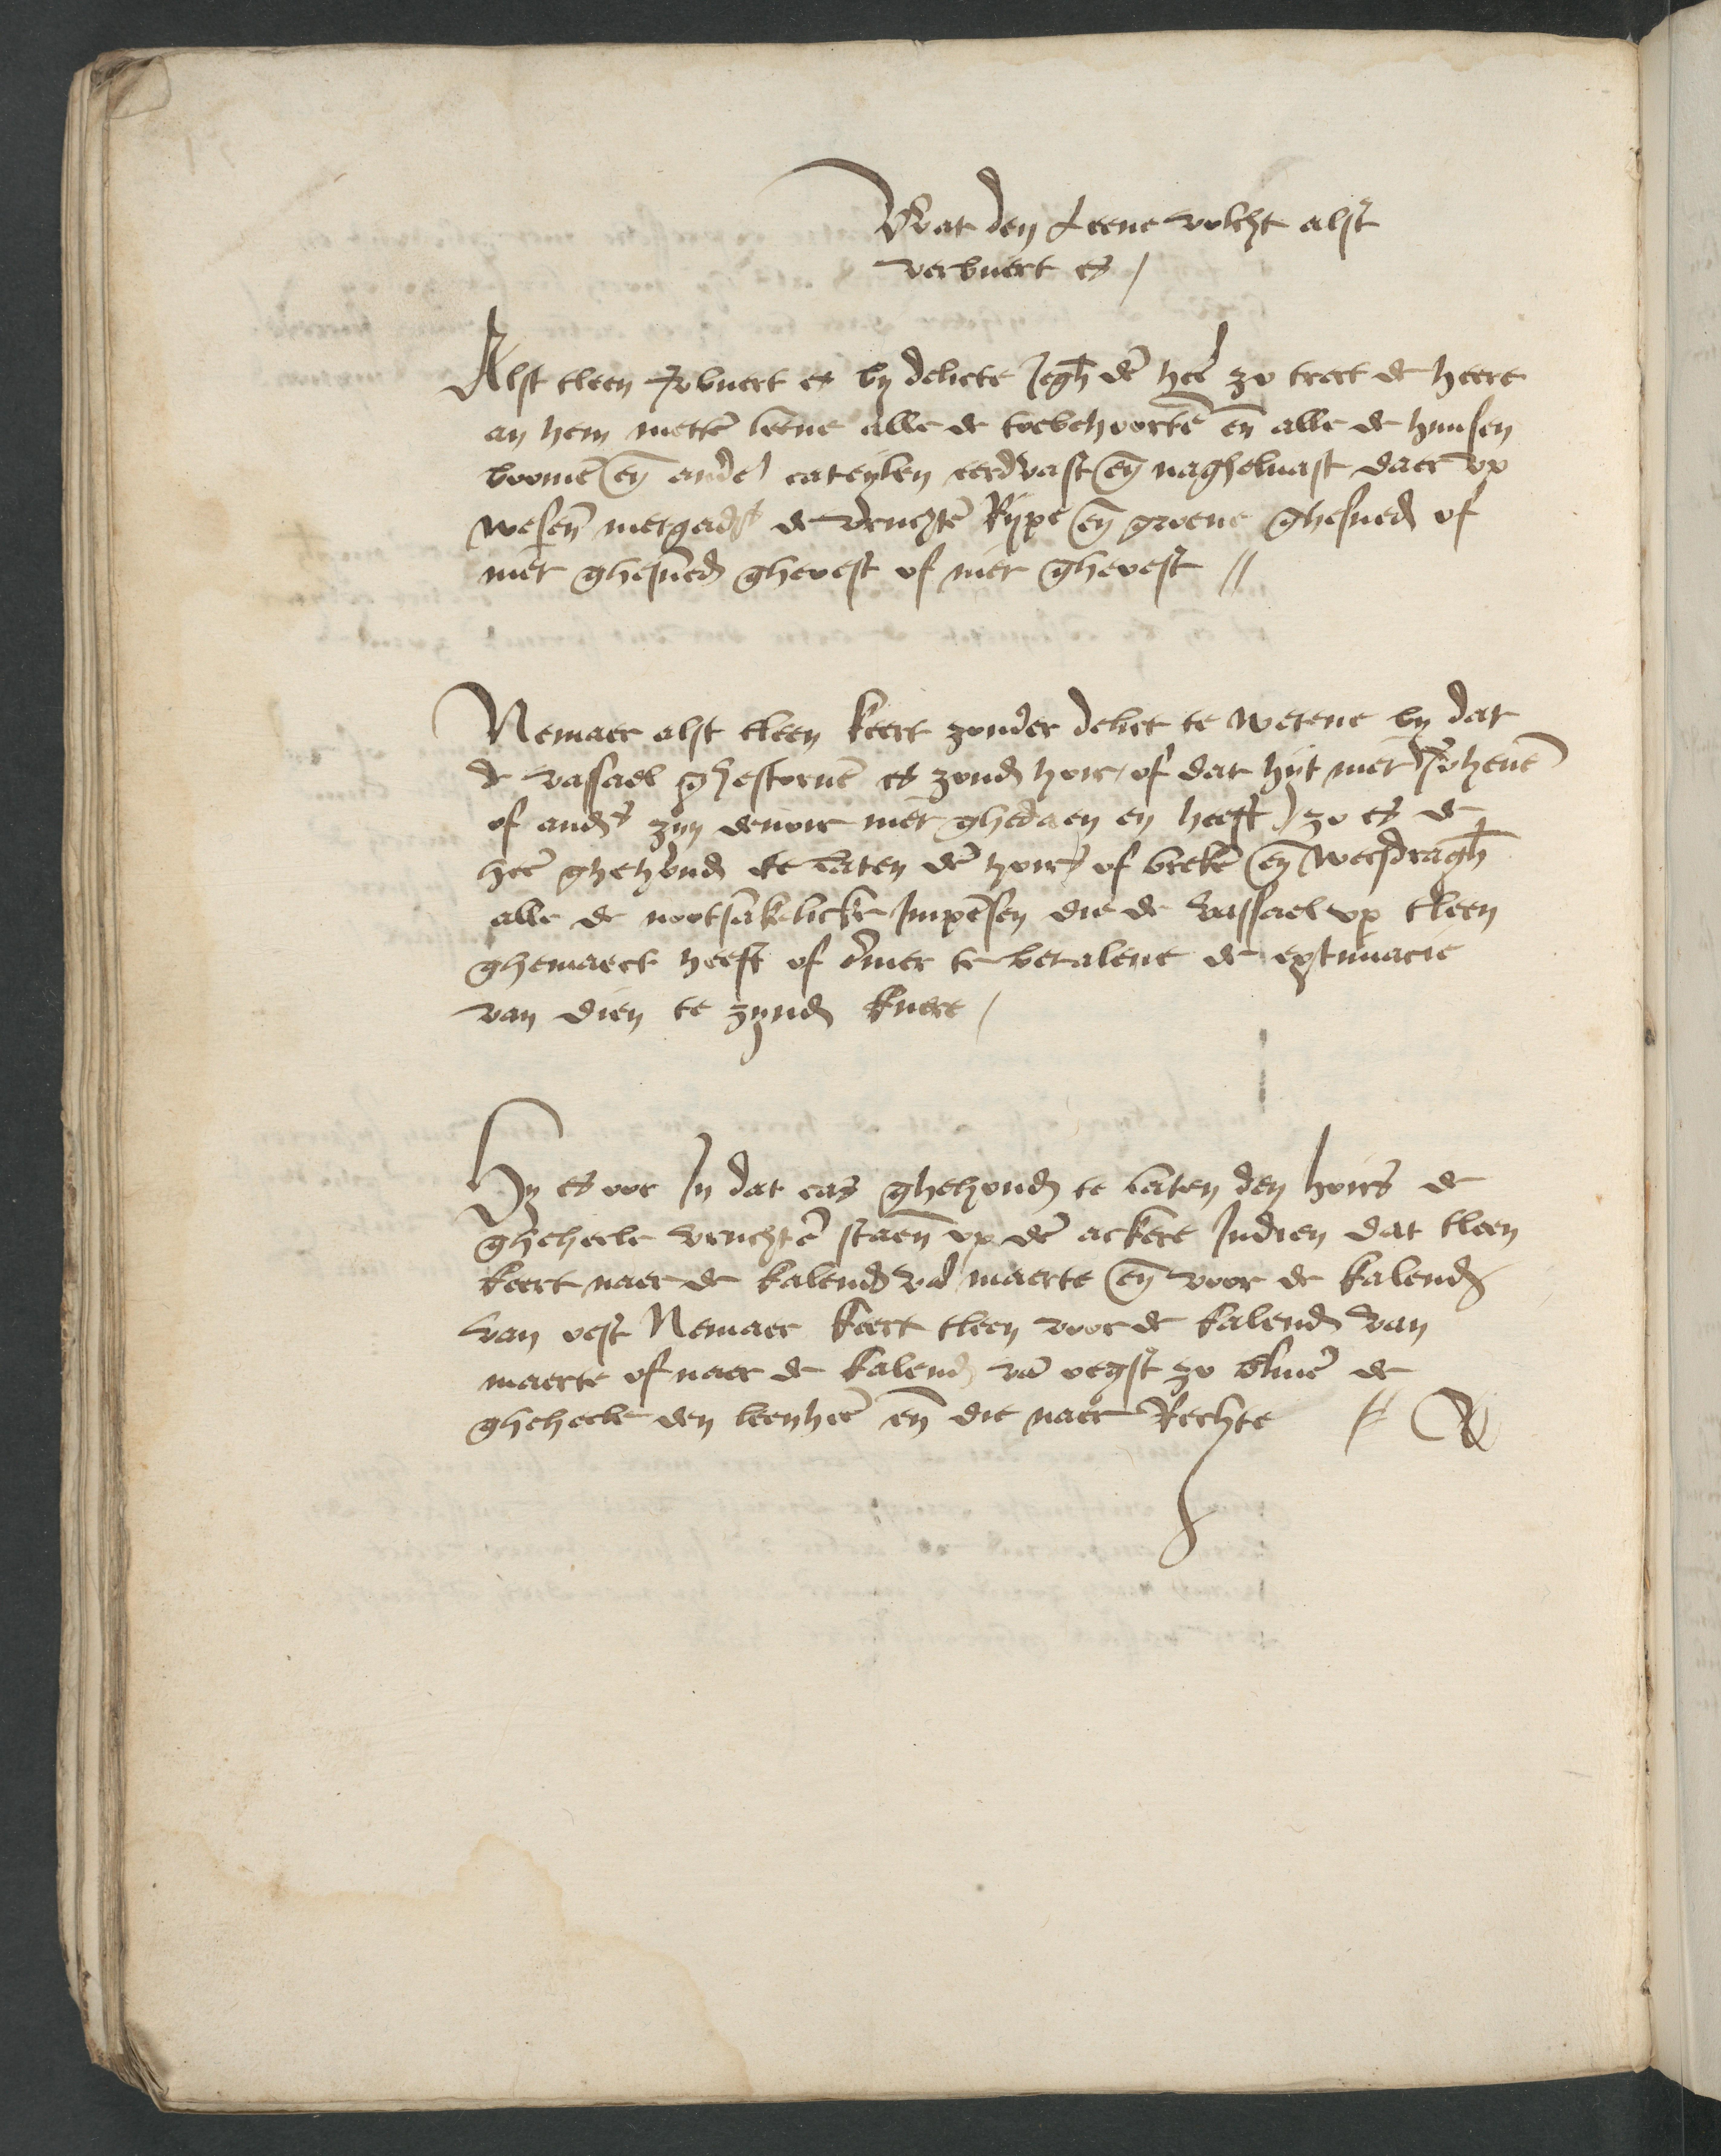 Wat den Leene volcht alst
verbuert es /
Alst tleen v̄buert es by delicte Jegh̄ dē heē zo trect de heere
an hem mettē leene alle de toebehoortē en̄ alle de huusen
boomē en̄ andē cateylen eerdvast en̄ naghelvast daer up
wesen̄ metgad's de vruchtē Rype en̄ groene ghesned of
niet ghesned gheoest of niet gheoest //
Nemaer alst tleen keert zonder delict te wetene by dat
de vassael ghestoruē es zond hoir / of dat hyt niet v̄heuē
of and's zyn deuoir niet ghedaen en heeft / zo es de
heē ghehoud te laten dē hoirs of breke en̄ wechdragh̄
alle de nootsakelicke Impēsen die de vassael up tleen
ghemaect heeft of te betalene de extimacie
van dien te zynd kuere /
Hy es ooc In dat cas ghehoud te laten den hoirs de
gheheele vruchtē staen̄ up dē ackere Indien dat tleen
keert naer de kalend vā maerte en̄ voor de kalend
van oest Nemaer keert tleen voor de kalend van
maerte of naer de kalend vā oegst zo bliuē de
gheheele den leenheē en̄ die naer Rechte //